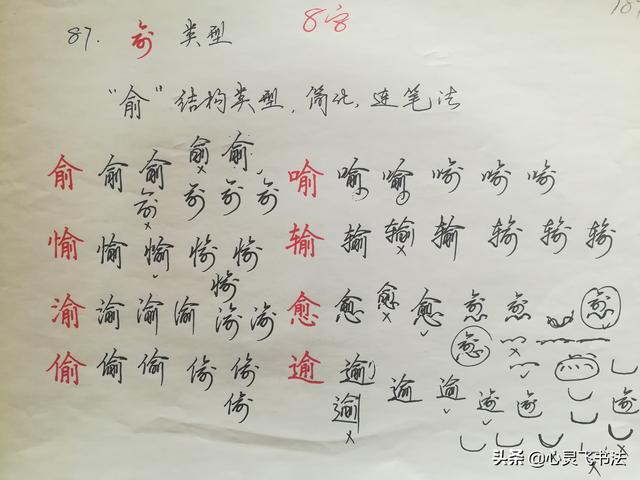 87. 俞 类型 8字
"俞"结构类型,简化,连笔法
俞 俞 俞 俞 俞 喻 喻 喻 喻 喻 喻
俞 俞 俞 俞
愉 愉 愉 愉 愉 输 输 输 输 输 输 输
愉
渝 渝 渝 渝 渝 渝 愈 愈 愈 愈 愈 愈 愈
愈
偷 偷 偷 偷 偷 逾 逾 逾 逾 逾 逾 逾
偷 逾
头条 @心灵飞书法